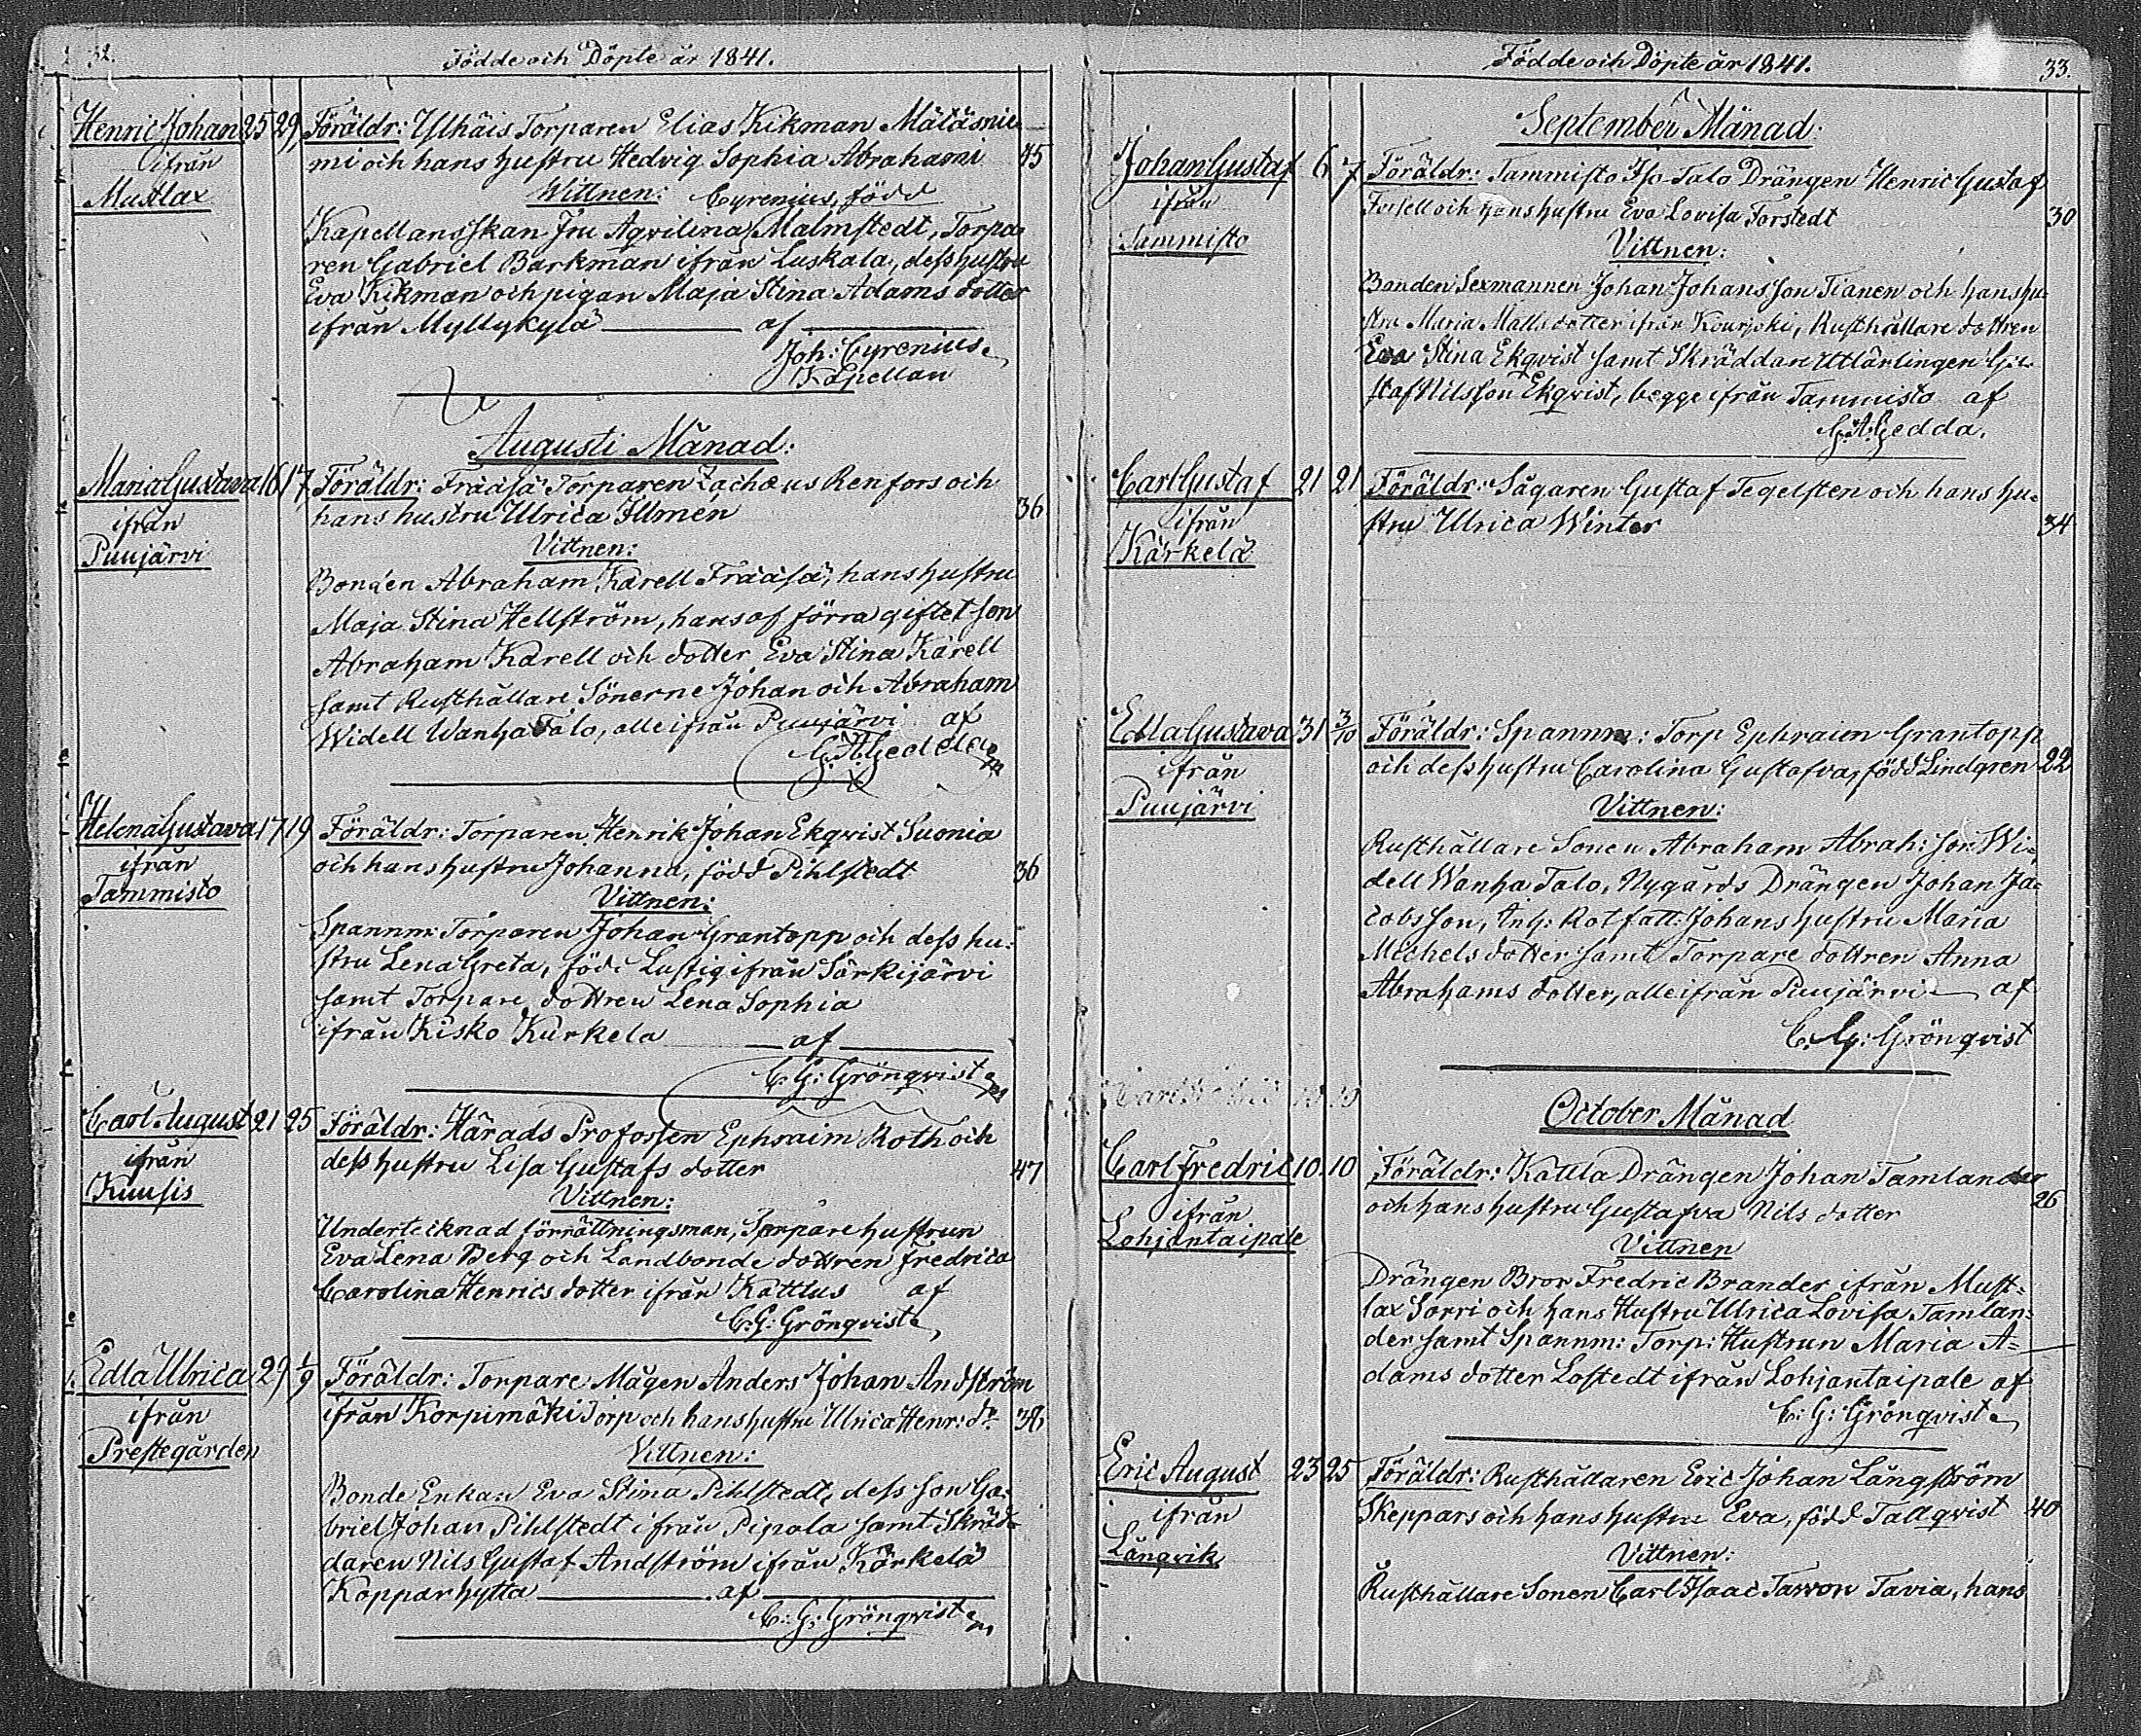 32.
Födde och Döpte år 1841.
Henric Johan 25 29 Föräldr: Ylhäis Torparen Elias Kikman Mätäsnie
ifrån mi och hans hustru Hedvig Sophia Abrahami 45
Mustlax Wittnen: Cyrenius, född
Kapellansskan Fru Aqvilina Malmstedt, Torpa
ren Gabriel Barkman ifrån Luskala, dess hustru
Eva Kikman och pigan Maja Stina Adams dotter
ifrån Myllykylä af
Joh: Cyrenius
Kapellan
Augusti Månad:
Maria Gustava 16 17 Föräldr: Frääsä Torparen Zachæus Renfors och
ifrån hans hustru Ulrica Illmén 36
Puujärvi Vittnen:
Bonden Abraham Karell Frääsä, hans hustru
Maja Stina Hellström, hans af förra giftet son
Abraham Karell och dotter Eva Stina Karell
samt Rusthållare Sönerne Johan och Abraham
Widell Wanha Talo, alle ifrån Puujärvi af
G. A. Gedda
Helena Gustava 17 19 Föräldr: Torparen Henrik Johan Ekqvist Suonia
ifrån och hans hustru Johanna, född Pihlstedt 36
Tammisto Vittnen:
Spannm: Torparen Johan Grantopp och dess hu:
stru Lena Greta, född Lustig ifrån Särkijärvi
samt Torpare dottren Lena Sophia
ifrån Kisko Kurkela af
C. G: Grönqvist
Carl August 21 25 Föräldr: Härads Profossen Ephraim Roth och
ifrån dess hustru Lisa Gustafs dotter 47
Kuusis Vittnen:
Undertecknad förrättningsman, Torpare hustrun
Eva Lena Berg och Landbonde dottren Fredrica
Carolina Henrics dotter ifrån Kattlus af
C. G: Grönqvist
Edla Ulrica 29 1/9 Föräldr: Torpare Mågen Anders Johan Andström
ifrån ifrån Korpimäki Torp och hans hustru Ulrica Henr: dr 38
Prestegården Vittnen:
Bonde Enkan Eva Stina Pihlstedt, dess son Ga:
briel Johan Pihlstedt ifrån Pipola samt Skräd:
daren Nils Gustaf Andström ifrån Kärkelä
Kopparhytta af
C. G: Grönqvist
Födde och Döpte år 1841.
33.
September Månad:
Johan Gustaf 6 7 Föräldr: Tammisto Iso Talo Drängen Henric Gustaf
ifrån Forsell och hans hustru Eva Lovisa Forstedt 30
Tammisto Vittnen:
Bonden Sexmannen Johan Johansson Tianen och hans hu
stru Maria Matts dotter ifrån Kourjoki, Rusthållare dottren
Eva Stina Ekqvist samt Skräddare Utlärlingen Gu
staf Nilsson Ekqvist, begge ifrån Tammisto af
G. A. Gedda.
Carl Gustaf 21 21 Föräldr: Sågaren Gustaf Tegelsten och hans hu:
ifrån stru Ulrica Winter 34
Kärkelä
Edla Gustava 31 3/10 Föräldr: Spannm: Torp Ephraim Grantopp
ifrån och dess hustru Carolina Gustafva, född Lindgren 22
Puujärvi Vittnen:
Rusthållare Sonen Abraham Abrah: son Wi:
dell Wanha Talo, Nygårds Drängen Johan Ja:
cobsson, Inh: Rotfatt: Johans hustru Maria
Michels dotter samt Torpare dottren Anna
Abrahams dotter, alle ifrån Puujärvi af
C. G: Grönqvist
October Månad
Carl Fredric 10 10 Föräldr: Kattla Drängen Johan Tamlander
ifrån och hans hustru Gustafva Nils dotter 26
Lohjantaipale Vittnen
Drängen Bror Fredric Brander ifrån Must:
lax Sorri och hans Hustru Ulrica Lovisa Tamlan:
der samt Spannm: Torp: Hustrun Maria A=
dams dotter Lostedt ifrån Lohjantaipale af
C. G: Grönqvist
Eric August 23 25 Föräldr: Rusthållaren Eric Johan Långström
ifrån Skeppars och hans hustru Eva, född Tallqvist 40
Långvik Vittnen:
Rusthållare Sonen Carl Isaac Tarvon Tavia, hans